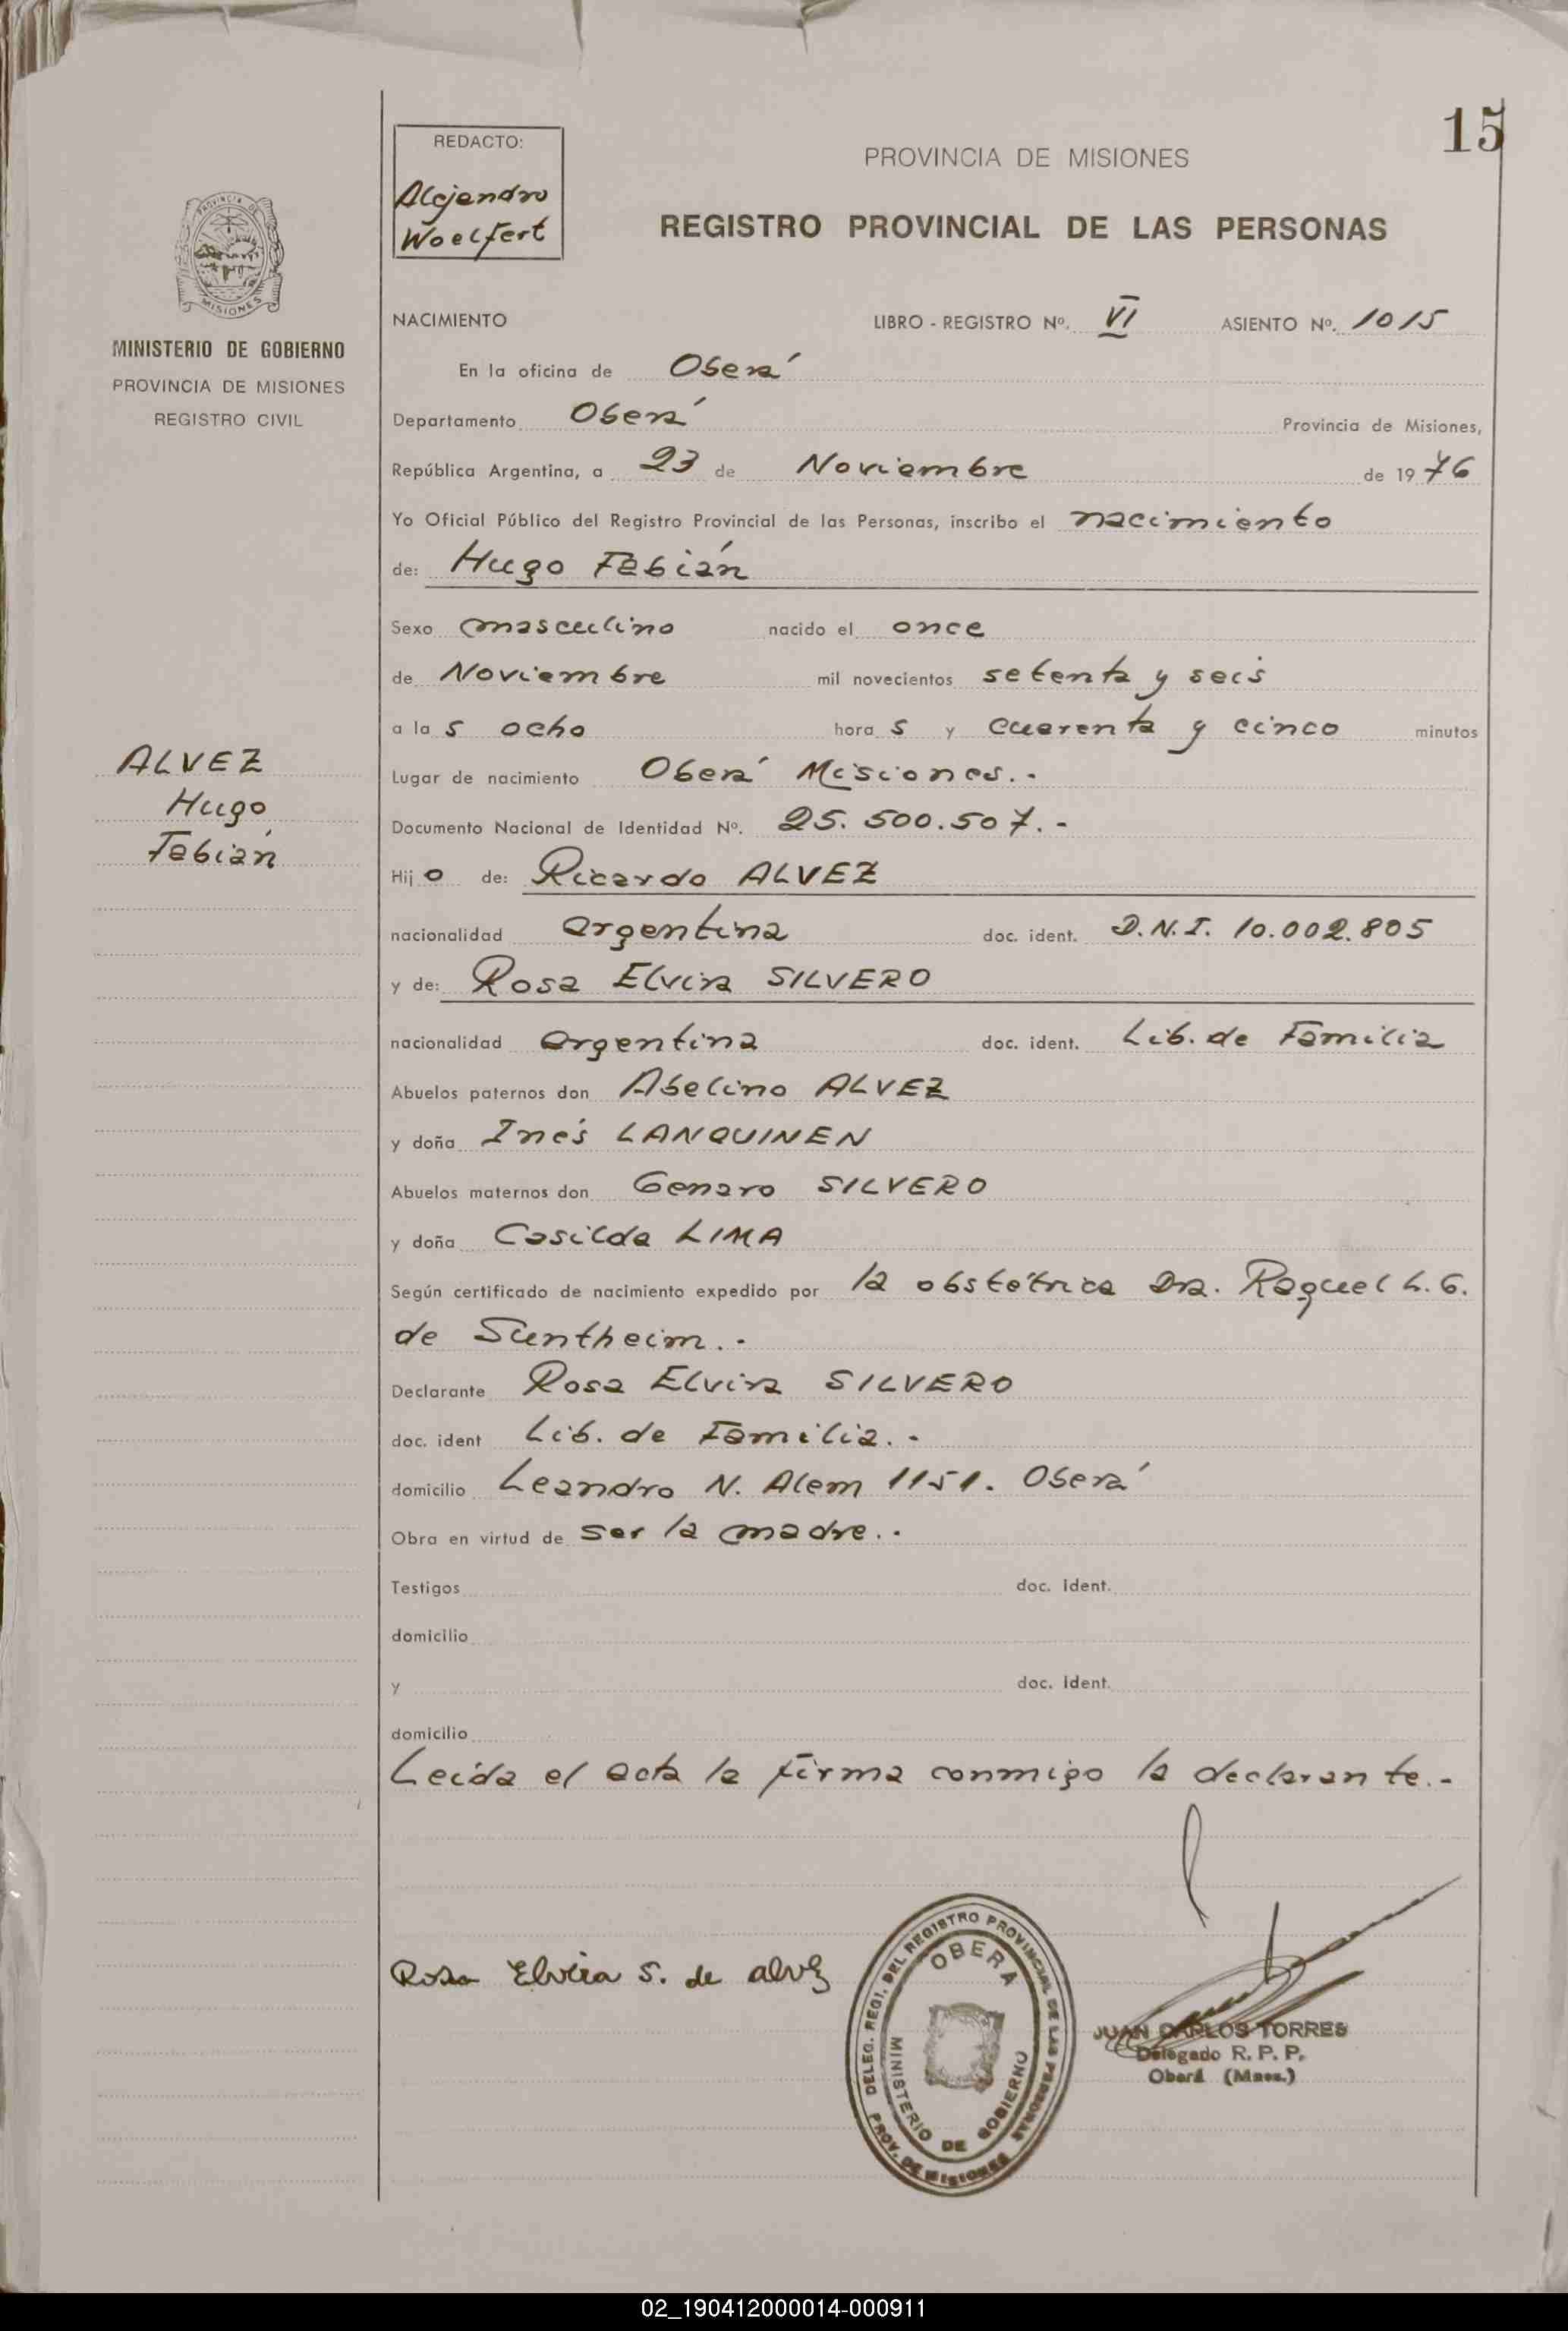 15
REDACTO:
Alejandro
Woelfert
PROVINCIA DE MISIONES
REGISTRO PROVINCIAL DE LAS PERSONAS
PROVINCIA DE
MISIONES
MINISTERIO DE GOBIERNO
PROVINCIA DE MISIONES
REGISTRO CIVIL
ALVEZ
Hugo
Fabián
NACIMIENTO LIBRO - REGISTRO Nº. VI ASIENTO Nº. 1015
En la oficina de Oberá
Departamento Oberá Provincia de Misiones,
República Argentina, a 23 de Noviembre de 1976
Yo Oficial Público del Registro Provincial de las Personas, inscribo el nacimiento
de: Hugo Fabián
Sexo masculino nacido el once
de Noviembre mil novecientos setenta y seis
a las ocho horas y cuarenta y cinco minutos
Lugar de nacimiento Oberá Misiones.-
Documento Nacional de Identidad Nº. 25.500.507.-
Hijo de: Ricardo ALVEZ
nacionalidad argentina doc. ident. D.N.I. 10.002.805
y de: Rosa Elvira SILVERO
nacionalidad argentina doc. ident. Lib. de Familia
Abuelos paternos don Abelino ALVEZ
y doña Inés LANQUINEN
Abuelos maternos don Genaro SILVERO
y doña Casilda LIMA
Según certificado de nacimiento expedido por la obstétrica Dra. Raquel L. G.
de Suntheim.-
Declarante Rosa Elvira SILVERO
doc. ident Lib. de Familia.-
domicilio Leandro N. Alem 1151. Oberá
Obra en virtud de ser la madre.-
Testigos doc. ident.
domicilio
y doc. ident.
domicilio
Leída el acta la firma conmigo la declarante.-
Rosa Elvira S. de alvez
DELEG. REGI. DEL REGISTRO PROVINCIAL DE LAS PERSONAS
PROV. DE MISIONES
OBERA
MINISTERIO DE GOBIERNO
JUAN CARLOS TORRES
Delegado R. P. P.
Oberá (Mnes.)
02_190412000014-000911